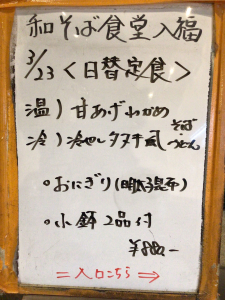 和そば食堂入福
3/23 <日替定食>
温) 甘あげわかめ
冷) 冷やしタヌキ風 そば うどん
○おにぎり(明太昆布)
○小鉢2品付
¥880-
=入口こちら⇒